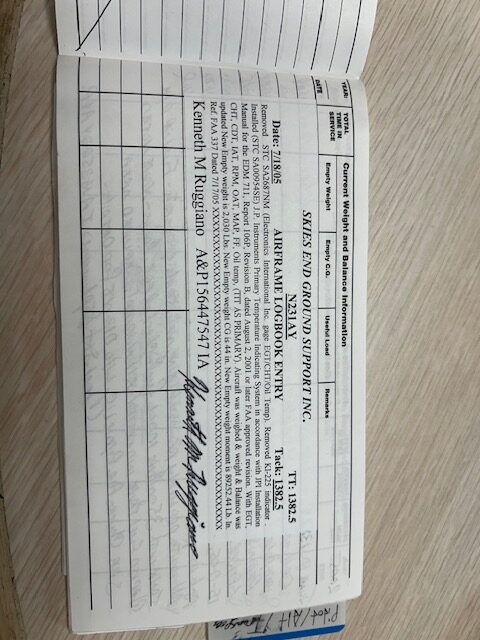 Current Weight and Balance Information
YEAR:
DATE
TOTAL TIME IN SERVICE
Empty Weight
Empty C.G.
Useful Load
Remarks
SKIES END GROUND SUPPORT INC.
N231AY TT: 1382.5
Date: 7/18/05 AIRFRAME LOGBOOK ENTRY Tack: 1382.5
Removed STC SA2687NM (Electronics International Inc. gage EGT/CHT/Oil Temp). Removed KI-225 indicator
Installed (STC SA00954SE) J.P. Instruments Primary Temperature Indicating System in accordance with JPI Installation
Manual for the EDM 711, Report 106P, Revision B, dated August 2, 2001 or later FAA approved revision. With EGT,
CHT, CDT, IAT, RPM, OAT, MAP, FF, Oil temp, (TIT AS PRIMARY). Aircraft was weighed & weight & Balance was
updated New Empty weight is 2,030 Lbs. New Empty weight CG is 44 in. New Empty weight moment is 89252.44 Lb. In.
Ref. FAA 337 Dated 7/17/05 XXXXXXXXXXXXXXXXXXXXXXXXXXXXXXXXXXXXXXXX
Kenneth M Ruggiano A&P156447547 IA Kenneth M Ruggiano
Pilot / Alt /